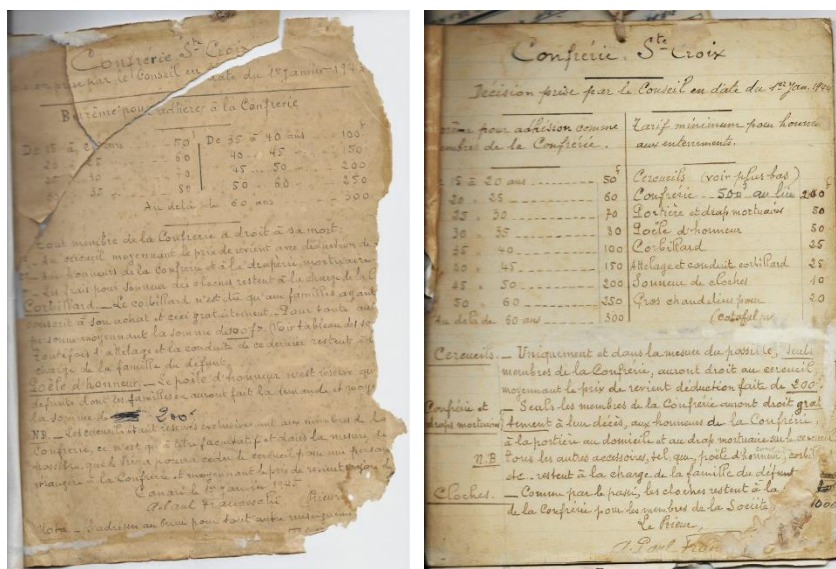 Confrérie Ste Croix
prise par le Conseil en date du 1er Janvier 19
Barême pour adhérer à la Confrérie
De 15 à 20 ans 50f De 35 à 40 ans 100f
20 25 60 40 45 150
25 30 70 45 50 200
30 35 80 50 60 250
Au delà de 60 ans 300
Tout membre de la Confrérie a droit à sa mort:
Au cercueil moyennant le prix de revient avec déduction de
Aux honneurs de la Confrérie et à la draperie mortuaire
Les frais pour sonneur des cloches restent à la charge de la
Corbillard _ Le corbillard n'est dû qu'aux familles ayant
consenti à son achat et ceci gratuitement. Pour toute au
personne moyennant la somme de 100 frs. Voir tableau des
Toutefois l'attelage et la conduite de ce dernier restent à
charge de la famille du défunt.
Poële d'honneur _ Le poële d'honneur n'est réservé qu
défunts dont les familles en auront fait la demande et moye
la somme de 200f
N.B _ Les cercueils étant réservés exclusivement aux membres de la
Confrérie, ce n'est qu'à titre facultatif et dans la mesure du
possible, que le Prieur pourra céder le cercueil à une person
étrangère à la Confrérie et moyennant le prix de revient
Canari le 1er Janvier 1945
Prieur
Nota _ S'adresser au Prieur pour tout autre renseignement
Confrérie Ste Croix
Décision prise par le Conseil en date du 1er Jan. 19
pour adhésion comme
membres de la Confrérie.
Tarif minimum pour honneurs
aux enterrements.
15 à 20 ans 50f Cercueils (voir plus bas)
20 25 60 Confrérie 500f au lieu 200f
25 30 70 Portière et drap mortuaire 50
30 35 80 Poële d'honneur 50
35 40 100 Corbillard 25
40 45 150 Attelage et conduite corbillard 25
45 50 200 Sonneur de cloches 10
50 60 250 Gros chandeliers pour 20
Au delà de 60 ans 300 (catafalque
Cercueils. _ Uniquement et dans la mesure du possible, seuls
membres de la Confrérie, auront droit au cercueil
moyennant le prix de revient déduction faite de 200f
Confrérie et
draps mortuaires
_ Seuls les membres de la Confrérie auront droit grat
itement à leur décès, aux honneurs de la Confrérie,
à la portière au domicile et au drap mortuaire sur le cercueil
N.B Tous les autres accessoires, tel que, poële d'honneur, corbil
etc. restent à la charge de la famille du défunt
Cloches. _ Comme par le passé, les cloches restent à la
de la Confrérie pour les membres de la Société
1000
Le Prieur,
Paul Fran